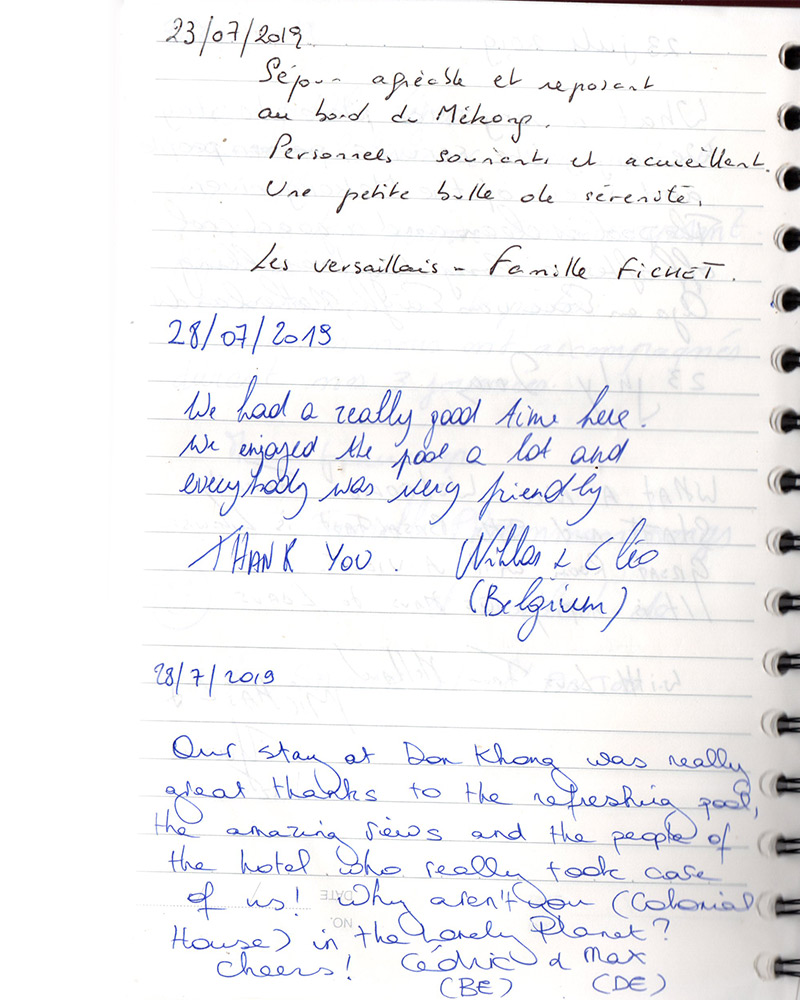 23/07/2019
Séjour agréable et reposant
au bord du Mékong.
Personnels souriants et acueillant.
Une petite bulle de sérénité.
Les versaillais - Famille FICHET.
28/07/2019
We had a really good time here.
We enjoyed the pool a lot and
everybody was very friendly
THANK YOU. & Cléo
(Belgium)
28/7/2019
Our stay at Don Khong was really
great thanks to the refreshing pool,
the amazing views and the people of
the hotel who really took care
of us! Why aren't you (Colonial
House) in the Lonely Planet?
cheers! Cédric & Max
(BE) (DE)
DATE
NO.